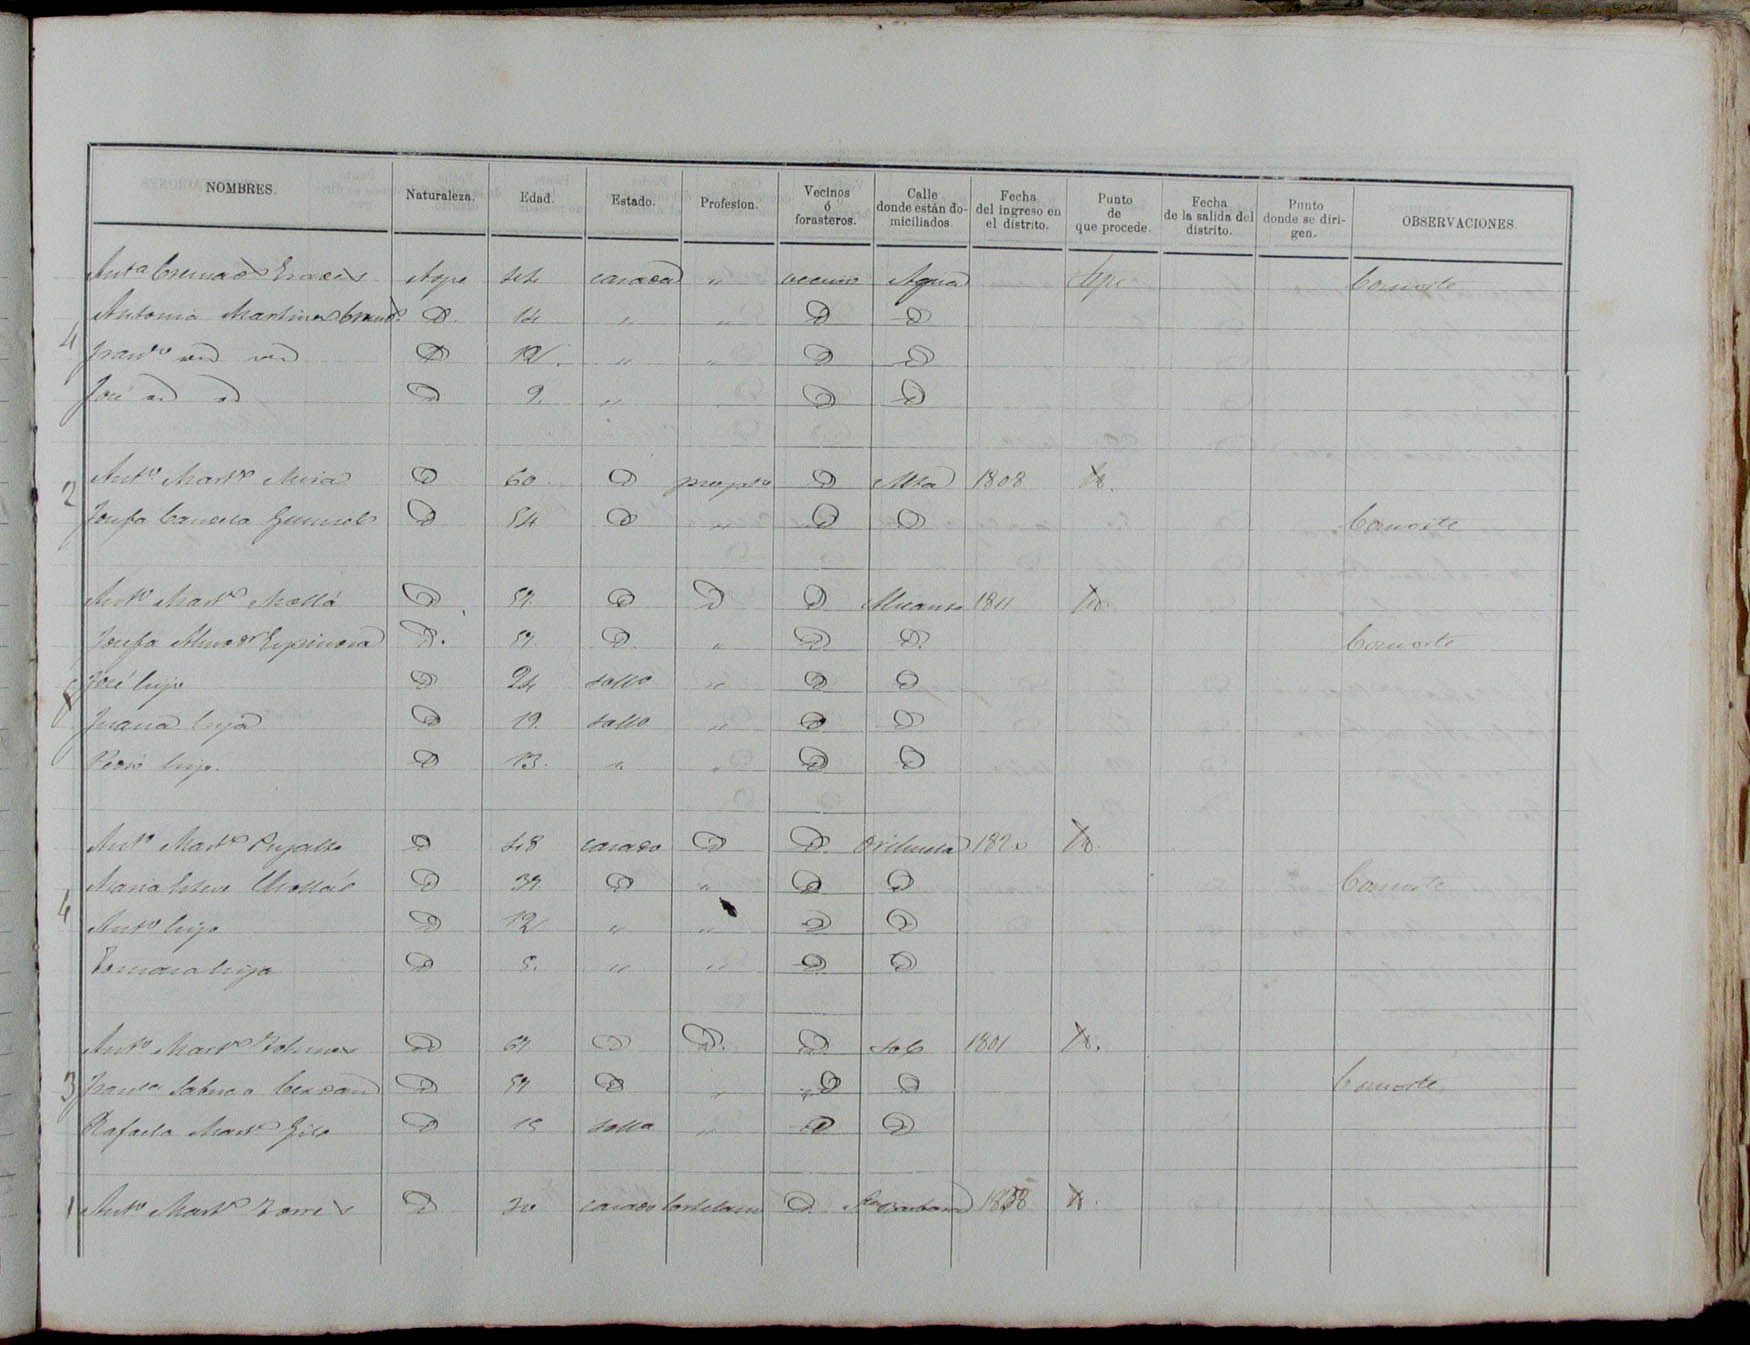 NOMBRES. Naturaleza. Edad. Estado. Profesion. Vecinos ó forasteros. Calle donde están domiciliados. Fecha del ingreso en el distrito. Punto de que procede. Fecha de la salida del distrito. Punto donde se dirigen. OBSERVACIONES.
Antª Cremades Aspe 44 casada " vecino Agua Aspe Consorte
4 Antonia Martinez Cremds. D 14 " " D D
Franco id id D 12 " " D D
José id id D 9 " D D
2 Anto Martz Mira D 60 D propto D Alta 1808 Id.
Josefa Candela D 54 D " D D Consorte
Anto Martz Mollá D 57 D D D Alicante 1811 Id.
Josefa Almodr Espinosa D. 57 D " D D. Consorte
José hijo D 24 solto " D D
Juana hija D 19 solto " D D
Pedro hijo. D 13 " " D D
Anto Martz Pujalte D 48 casado D D Orihuela 1820 Id.
Maria Esteve Mollá D 37 D " D D Consorte
4 Anto hijo D 12 " " D D
Tomasa hija D 5. " " D D
Anto Martz D 67 D D. D Sol 1801 Id.
3 Franca Sabuco Cerdan D 57 D " D D Consorte
Rafaela Martz Gil D 15 solta " D D
1 Anto Martz Torres D 30 casado D Sta Barbara 1858 Id.